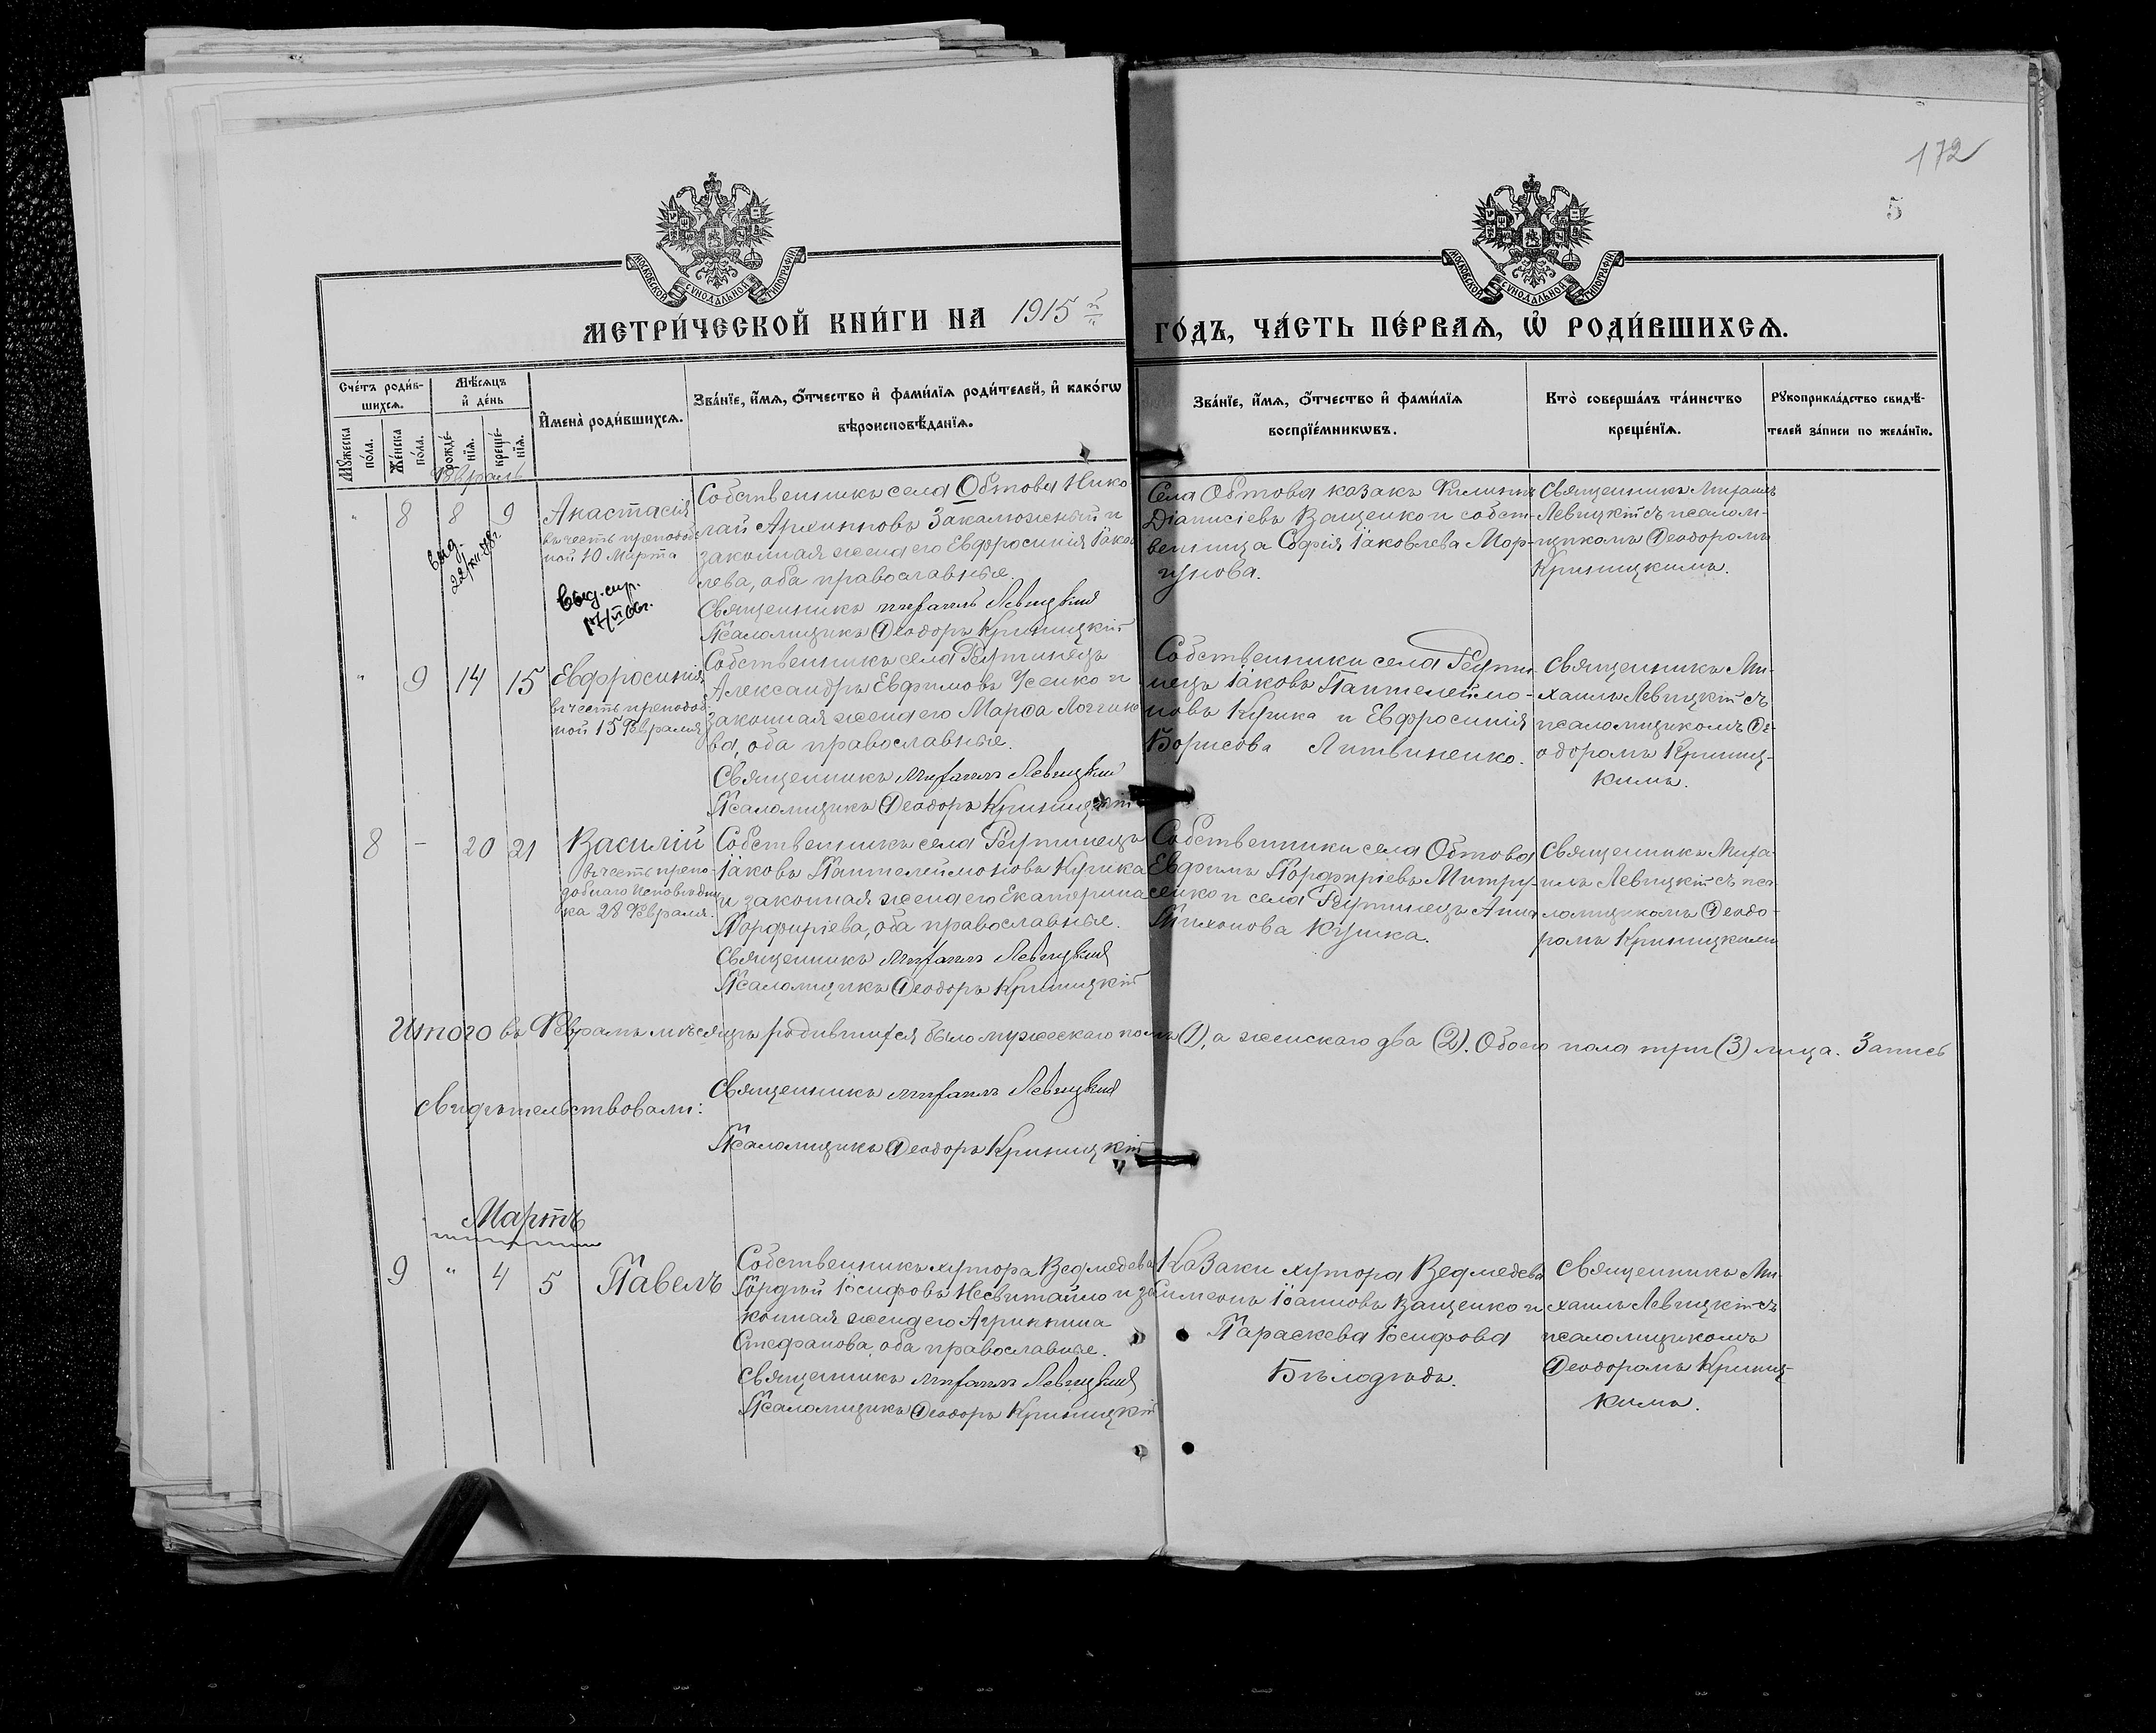 172
5
МОСКОВСКОЙ СѴНОДАЛЬНОЙ ТИПОГРАФІИ
МОСКОВСКОЙ СѴНОДАЛЬНОЙ ТИПОГРАФІИ
МЕТРИ́ЧЕСКОЙ КНИ́ГИ НА 1915 й
ГО́ДЪ, ЧА́СТЬ ПЕ́РВАѦ, Ѽ РОДИ́ВШИХСѦ.
Сче́тъ роди́в-
шихсѧ.
Мѣ́сѧцъ
и҆ де́нь
И҆мена̀ роди́вшихсѧ.
Зва́нїе, и҆́мѧ, ѻ҆́тчество и҆ фами́лїѧ роди́телей, и҆ како́гѡ
вѣроисповѣ́данїѧ.
Мꙋ́жеска
по́ла.
Же́нска
по́ла.
рожде́-
нїѧ.
креще́-
нїѧ.
Зва́нїе, и҆́мѧ, ѻ҆́тчество и҆ фами́лїѧ
воспрїе́мникѡвъ.
Кто̀ соверша́лъ та́инство
креще́нїѧ.
Рꙋкоприкла́дство свидѣ́-
телей за́писи по жела́нїю.
Февраль
" 8 8 9
Анастасія
въ честь преподоб
ной 10 Марта
выд.
22/XII 78г.
выд. спр.
17/II 66г.
Собственникъ села Обтова Нико
лай Архиповъ Закалюжный и
законная жена его Евфросинія Іаков
лева, оба православные.
Священникъ Михаилъ Левицкій
Псаломщикъ Ѳеодоръ Криницкій
Села Обтова казакъ Филиппъ
Діанисіевъ Ващенко и собст-
венница Софія Іаковлева Мор-
гунова.
Священникъ Михаилъ
Левицкій съ псалом-
щикомъ Ѳеодоромъ
Криницкимъ.
" 9 14 15
Евфросинія
въ честь преподоб-
ной 15 Февраля
Собственникъ села Реутинецъ
Александръ Евфимовъ Усенко и
законная жена его Марѳа Логгино
ва, оба православные.
Священникъ Михаилъ Левицкій
Псаломщикъ Ѳеодоръ Криницкій
Собственники села Реути
нецъ Іаковъ Пантелеимо-
новъ Кушка и Евфросинія
Борисова Литвиненко.
Священникъ Ми-
хаилъ Левицкій съ
псаломщикомъ Ѳе-
одоромъ Криниц-
кимъ.
8 - 20 21
Василій
въ честь препо-
добнаго Исповѣдни
ка 28 Февраля.
Собственникъ села Реутинецъ
Іаковъ Пантелеимоновъ Кушка
и законная жена его Екатерина
Порфиріева, оба православные.
Священникъ Михаилъ Левицкій
Псаломщикъ Ѳеодоръ Криницкій
Собственники села Обтова
Евфимъ Порфиріевъ Митру-
сенко и села Реутинецъ Анна
Тихонова Кушка.
Священникъ Миха-
илъ Левицкій съ пса
ломщикомъ Ѳеодо-
ромъ Криницкимъ
Итого въ Февралѣ мѣсяцѣ родившихся было мужескаго пола (1), а женскаго два (2). Обоего пола три (3) лица. Запись
свидѣтельствовали:
Священникъ Михаилъ Левицкій
Псаломщикъ Ѳеодоръ Криницкій
Мартъ
9 " 4 5
Павелъ
Собственникъ хутора Ведмедева
Гордѣй Іосифовъ Несвитайло и за
конная жена его Агриппина
Стефанова, оба православные.
Священникъ Михаилъ Левицкій
Псаломщикъ Ѳеодоръ Криницкій
Казаки хутора Ведмедева
Симеонъ Іоанновъ Ващенко и
Параскева Іосифова
Бѣлодѣдъ.
Священникъ Ми-
хаилъ Левицкій съ
псаломщикомъ
Ѳеодоромъ Криниц-
кимъ.